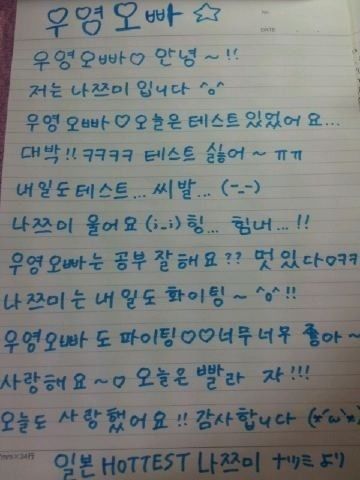 우영오빠 ☆
우영오빠♡ 안녕~!!
저는 나쯔미 입니다 ^o^
우영오빠♡오늘은 테스트 있었어요...
대박!! ㅋㅋㅋㅋ 테스트 싫어~ ㅠㅠ
내일도 테스트... 씨발... (-_-)
나쯔미 울어요 (i_i) 힝... 힘내...!!
우영오빠는 공부 잘해요?? 멋있다ㅇㅋㅋ
나쯔미는 내일도 화이팅~ ^o^ !!
우영오빠 도 파이팅♡♡너무너무 좋아~
사랑해요~♡ 오늘은 빨라 자!!!
오늘도 사랑했어요!! 감사합니다 (x´ω`x)
일본 HOTTEST 나쯔미 ナツミより